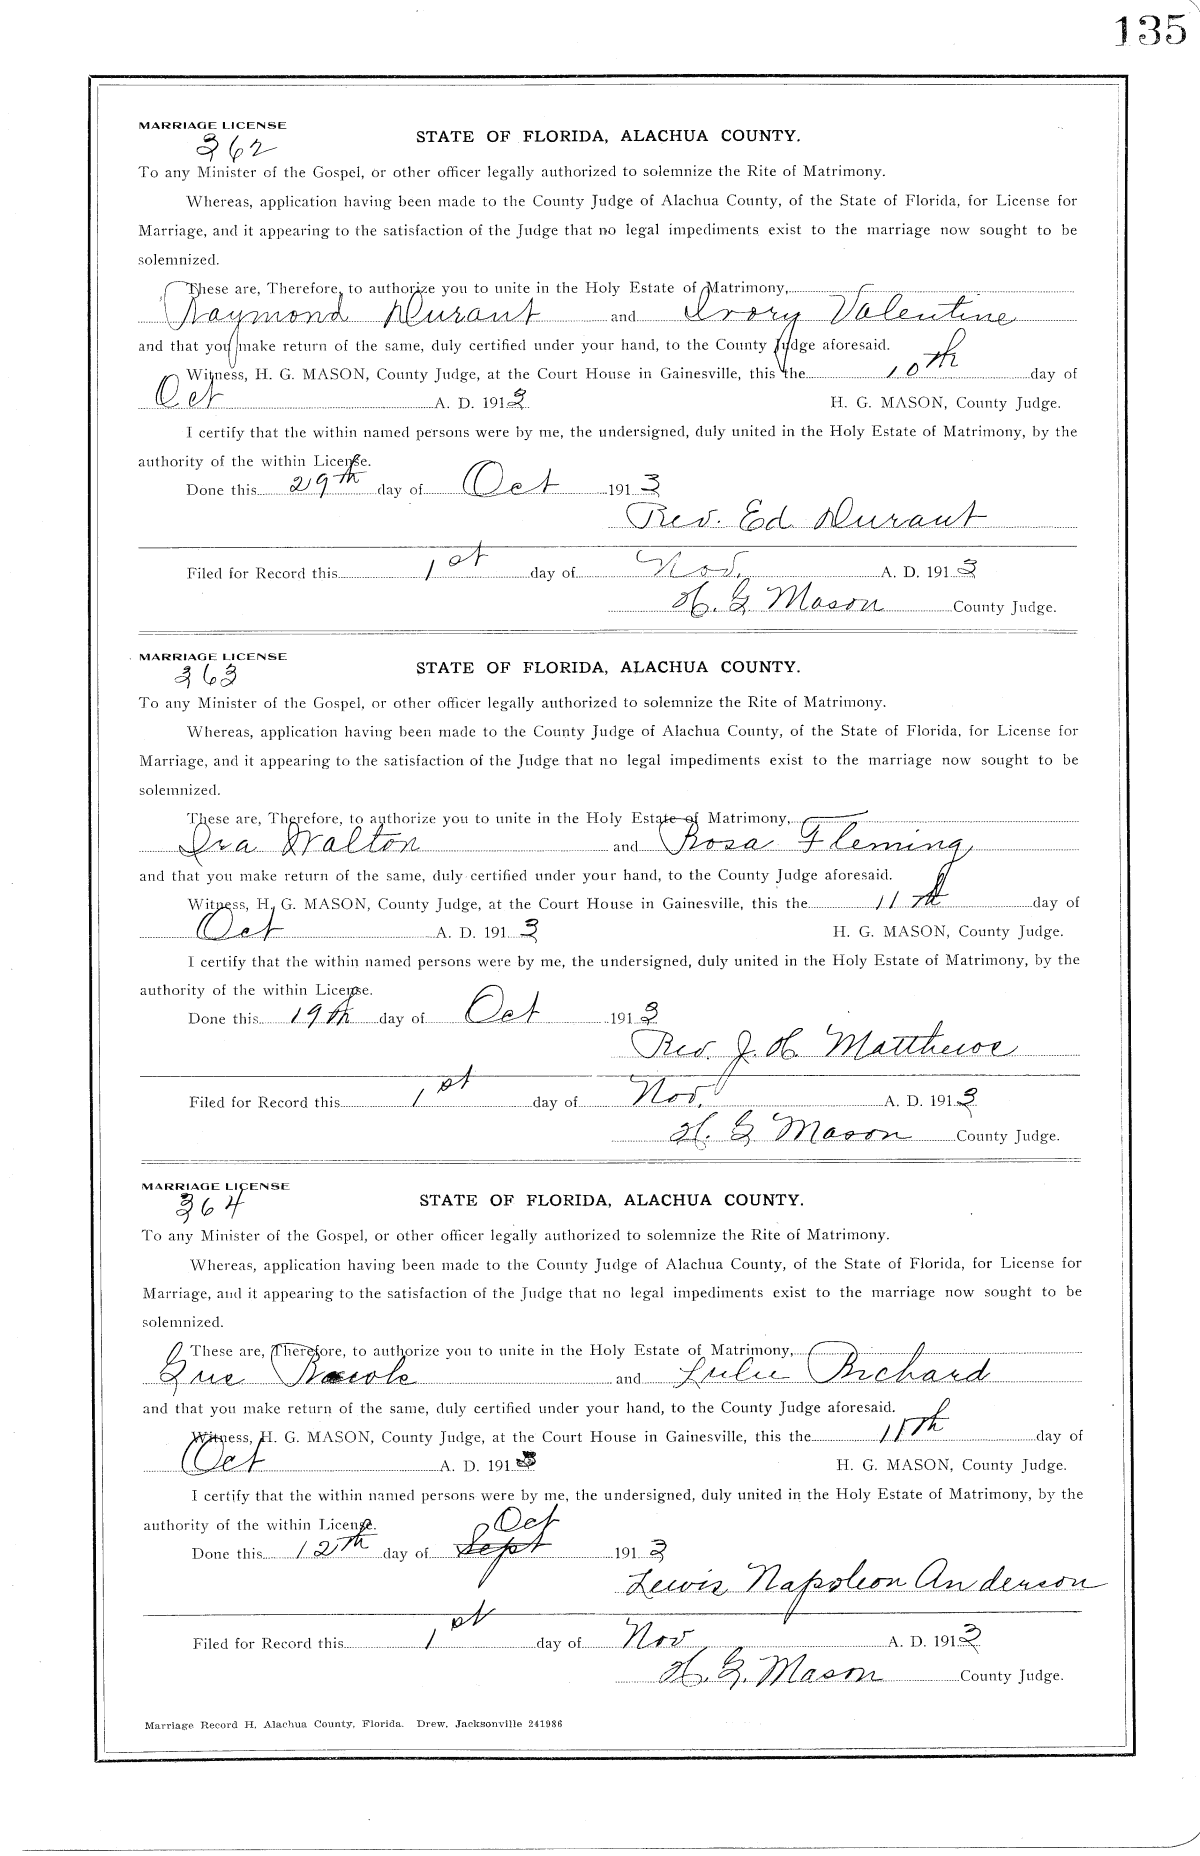 135
MARRIAGE LICENSE
362
STATE OF FLORIDA, ALACHUA COUNTY.
To any Minister of the Gospel, or other officer legally authorized to solemnize the Rite of Matrimony.
Whereas, application having been made to the County Judge of Alachua County, of the State of Florida, for License for
Marriage, and it appearing to the satisfaction of the Judge that no legal impediments exist to the marriage now sought to be
solemnized.
These are, Therefore, to authorize you to unite in the Holy Estate of Matrimony,
Raymond Durant and Ivory Valentine
and that you make return of the same, duly certified under your hand, to the County Judge aforesaid.
Witness, H. G. MASON, County Judge, at the Court House in Gainesville, this the 10th day of
Oct A. D. 1913 H. G. MASON, County Judge.
I certify that the within named persons were by me, the undersigned, duly united in the Holy Estate of Matrimony, by the
authority of the within License.
Done this 29th day of Oct 1913
Rev. Ed Durant
Filed for Record this 1st day of Nov. A. D. 1913
H. G Mason County Judge.
MARRIAGE LICENSE
363
STATE OF FLORIDA, ALACHUA COUNTY.
To any Minister of the Gospel, or other officer legally authorized to solemnize the Rite of Matrimony.
Whereas, application having been made to the County Judge of Alachua County, of the State of Florida, for License for
Marriage, and it appearing to the satisfaction of the Judge that no legal impediments exist to the marriage now sought to be
solemnized.
These are, Therefore, to authorize you to unite in the Holy Estate of Matrimony,
Ira Walton and Rosa Fleming
and that you make return of the same, duly certified under your hand, to the County Judge aforesaid.
Witness, H. G. MASON, County Judge, at the Court House in Gainesville, this the 11th day of
Oct A. D. 1913 H. G. MASON, County Judge.
I certify that the within named persons were by me, the undersigned, duly united in the Holy Estate of Matrimony, by the
authority of the within License.
Done this 19th day of Oct 1913
Rev. J. H. Matthews
Filed for Record this 1st day of Nov. A. D. 1913
H. G Mason County Judge.
MARRIAGE LICENSE
364
STATE OF FLORIDA, ALACHUA COUNTY.
To any Minister of the Gospel, or other officer legally authorized to solemnize the Rite of Matrimony.
Whereas, application having been made to the County Judge of Alachua County, of the State of Florida, for License for
Marriage, and it appearing to the satisfaction of the Judge that no legal impediments exist to the marriage now sought to be
solemnized.
These are, Therefore, to authorize you to unite in the Holy Estate of Matrimony,
Gus and Lulu Richard
and that you make return of the same, duly certified under your hand, to the County Judge aforesaid.
Witness, H. G. MASON, County Judge, at the Court House in Gainesville, this the 11th day of
Oct A. D. 1913 H. G. MASON, County Judge.
I certify that the within named persons were by me, the undersigned, duly united in the Holy Estate of Matrimony, by the
authority of the within License.
Oct
Done this 12th day of Sept 1913
Lewis Napoleon Anderson
Filed for Record this 1st day of Nov A. D. 1913
H. G. Mason County Judge.
Marriage Record H, Alachua County, Florida. Drew, Jacksonville 241986